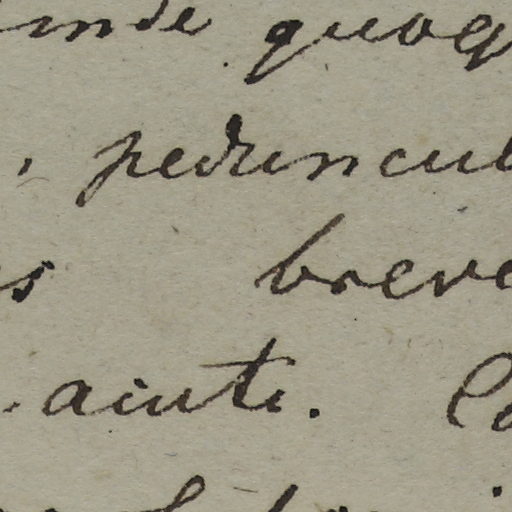 inde quoq
, peduncul
s breve
aciuti. C